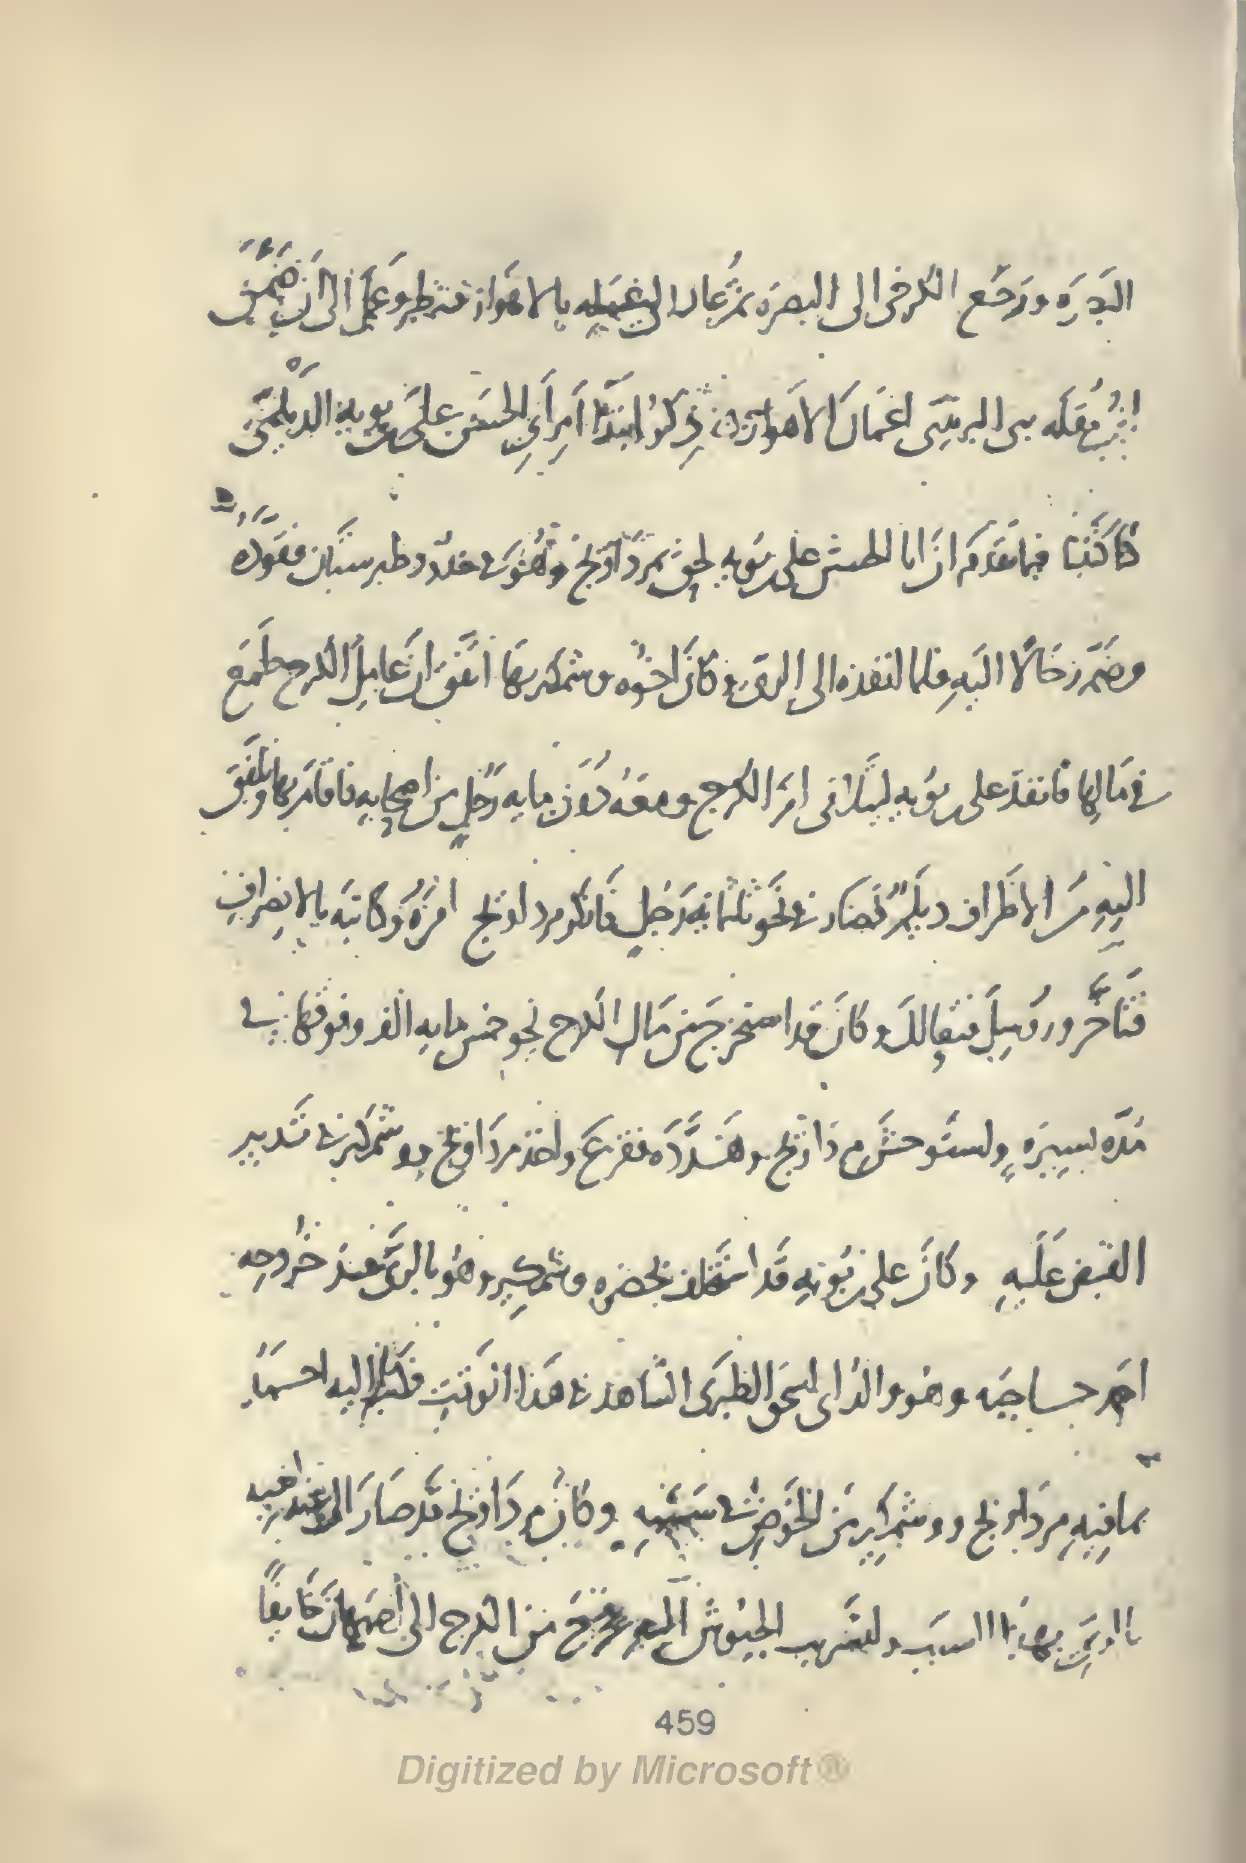 البصره ورجع الكرخي الى البصره ثم عاد الى عمله بالاهواز فنظر وعمل الى ان ضمن
ابن مقله بني البريدي اعمال الاهواز ذكر ابتدا امر ابي الحسن علي بن بويه الديلمي
قد كتبنا فيما تقدم ان ابا الحسن علي بن بويه لحق بمرداويج وهو في حدود طبرستان فقوده
وضم رجالا اليه فلما انفذه الى الري وكان اخوه وشمكير بها اتفق ان عامل الكرج طمع
في مالها فانفذ علي بن بويه ليتلافى امر الكرج ومعه دون مايه رجل من اصحابه فاقام بها وتلفق
اليه من الاطراف ديلم فصار في نحو ثلثمايه رجل فانكر مرداويج امره وكاتبه بالانصراف
فتاخر وروسل فتثاقل وكان قد استخرج من مال الكرج نحو خمس مايه الف وفوقها في
مده يسيره واستوحش مرداويج وهدده ففزع واخذ مرداويج ووشمكير في تدبير
القبض عليه وكان علي بن بويه قد استخلف بحضره وشمكير وهو بالري عند خروجه
احمد وهو والد ابي اسحق الطبري الشاهد في هذا الوقت فكتب اليه احمد
بما فيه مرداويج ووشمكير من الخوض في وكان مرداويج قد صار الى
بالري بهذا السبب ولتسريب الجيوش اليه فخرج من الكرج الى اصبهان خايفا
459
Digitized by Microsoft ®